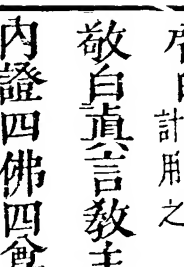 計用之
敬白眞言教主
內證四佛四